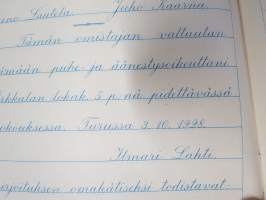 no Lautela. Juho Kaarna.
Tämän omistajan valtuutan
imään puhe ja äänestysoikeuttani
rkkalan lohk. 5 p nä pidettävässä
okouksessa. Turussa 3. 10. 1928.
Ilmari Lahti.
rjoituksen omakätiseksi todistavat: